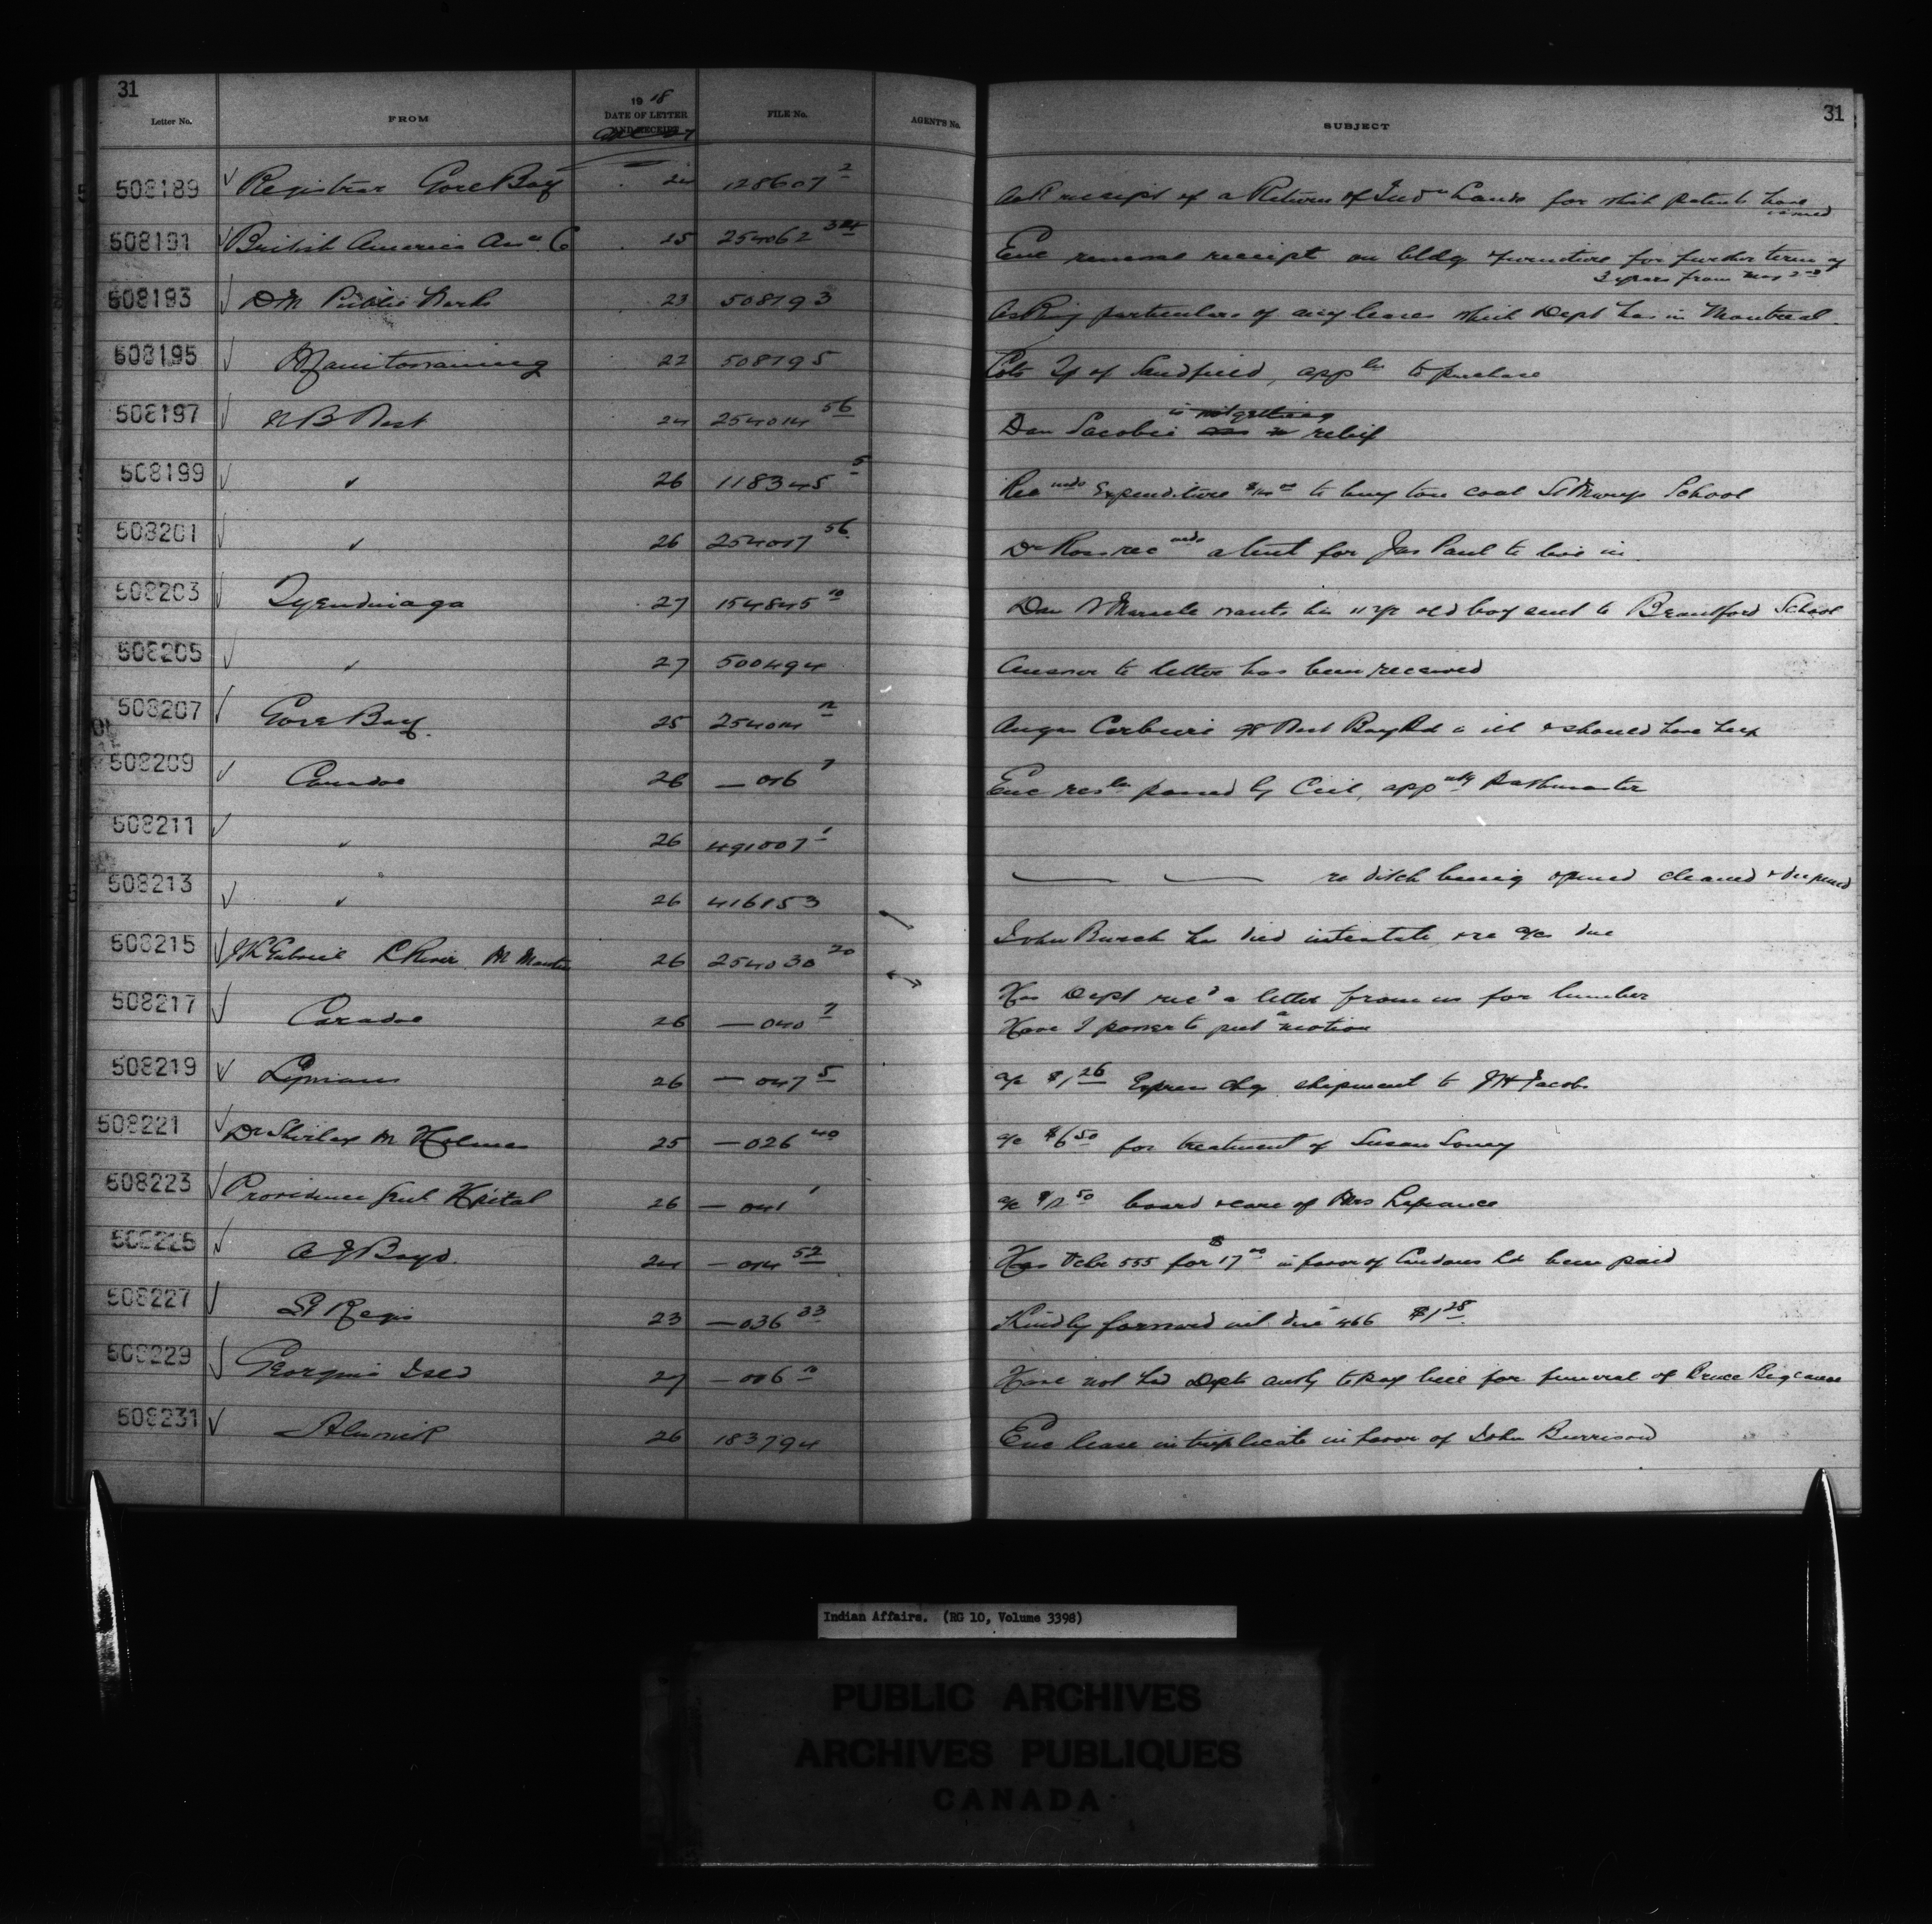 31
31
Letter No. FROM 19 18 DATE OF LETTER AND RECEIPT FILE No. AGENT'S No. SUBJECT
508189 ✓ Registrar Gore Bay 24 128607 2 Ack receipt of a Return of Ind n Lands for which patents have issued
508191 ✓ British America Ass n Co 25 254062 324 Enc renewal receipt on bldg & furniture for further term of 3 years from May 2nd
508193 ✓ DM Public Works 23 508193 Asking particulars of any leases which Dept has in Montreal.
508195 ✓ Manitowaning 22 508195 Lots Tp of Sandfield, app ln to purchase
508197 ✓ N B West 24 254014 56 Dan Jacobs is not getting relief
508199 ✓ " 26 118345 5 Rec mds Expenditure $14 00 to buy ton coal St Marys School
508201 ✓ " 26 254017 56 Dr Ross rec mds a tent for Jas Paul to live in
508203 ✓ Tyendinaga 27 154845 10 Dan Maracle wants his 11 yr old boy sent to Brantford School
508205 ✓ " 27 500494 Answer to letter has been received
508207 ✓ Gore Bay. 25 254014 12 Angus Corbiere of West Bay Rd is ill & should have help
508209 ✓ Caradoc 26 — 016 7 Enc res ln passed by Ccil, app ntg Pathmaster
508211 ✓ " 26 491007 1 — — re ditch being opened cleaned & deepened
508213 ✓ " 26 416153 John Burch has died intestate, re a/c due
508215 ✓ Gabriel R River 26 254030 20 Has Dept rec'd a letter from us for lumber
508217 ✓ Caradoc 26 — 040 7 Have I power to put a motion
508219 ✓ Lymans 26 — 047 5 a/c $1 26 Express chg shipment to J H Jacobs
508221 ✓ Dr Shirley M Holmes 25 — 026 40 a/c $6 50 for treatment of Susan Soney
508223 ✓ Providence Hpital 26 — 041 1 a/c 50 board & care of Mrs Lafrance
508225 ✓ A J Boyd. 24 — 014 52 Has Vchr 555 for $17 00 in favor of Ltd been paid
508227 ✓ St Regis 23 — 036 33 Kindly forward int due 466 $1 28
508229 ✓ Georgina Isld 27 — 006 10 Have not had Depts auth to pay bill for funeral of Bruce Bigcanoe
508231 ✓ Alnwick 26 183794 Enc lease in triplicate in favor of John Burrison
Indian Affairs. (RG 10, Volume 3398)
PUBLIC ARCHIVES
ARCHIVES PUBLIQUES
CANADA